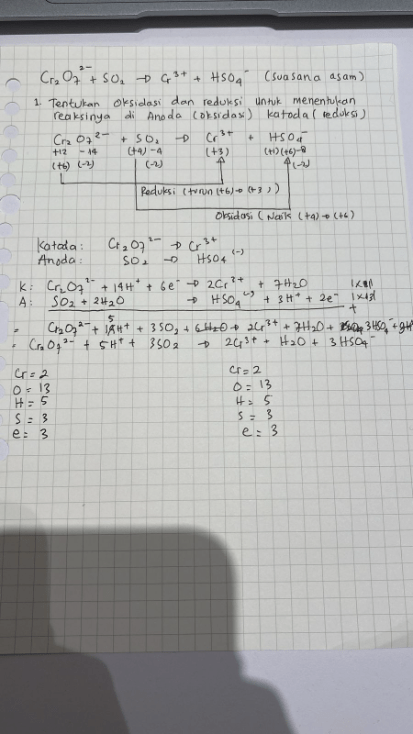 Cr₂O₇²⁻ + SO₂ → Cr³⁺ + HSO₄⁻ (suasana asam)
1. Tentukan oksidasi dan reduksi untuk menentukan
reaksinya di Anoda (oksidasi) katoda (reduksi)
Cr₂O₇²⁻ + SO₂ → Cr³⁺ + HSO₄⁻
+12 -14 (+4) -4 (+3) (+1) (+6) -8
(+6) (-2) (-2) (-2)
Reduksi (turun (+6) → (+3))
Oksidasi (Naik (+4) → (+6)
Katoda: Cr₂O₇²⁻ → Cr³⁺
Anoda: SO₂ → HSO₄⁽⁻⁾
K: Cr₂O₇²⁻ + 14H⁺ + 6e⁻ → 2Cr³⁺ + 7H₂O |x1|
A: SO₂ + 2H₂O → HSO₄⁽⁻⁾ + 3H⁺ + 2e⁻ |x3|
+
5
= Cr₂O₇²⁻ + 14H⁺ + 3SO₂ + 6H₂O → 2Cr³⁺ + 7H₂O + 3HSO₄⁻ + 9H⁺
= Cr₂O₇²⁻ + 5H⁺ + 3SO₂ → 2Cr³⁺ + H₂O + 3HSO₄⁻
Cr = 2 Cr = 2
O = 13 O = 13
H = 5 H = 5
S = 3 S = 3
e = 3 e = 3